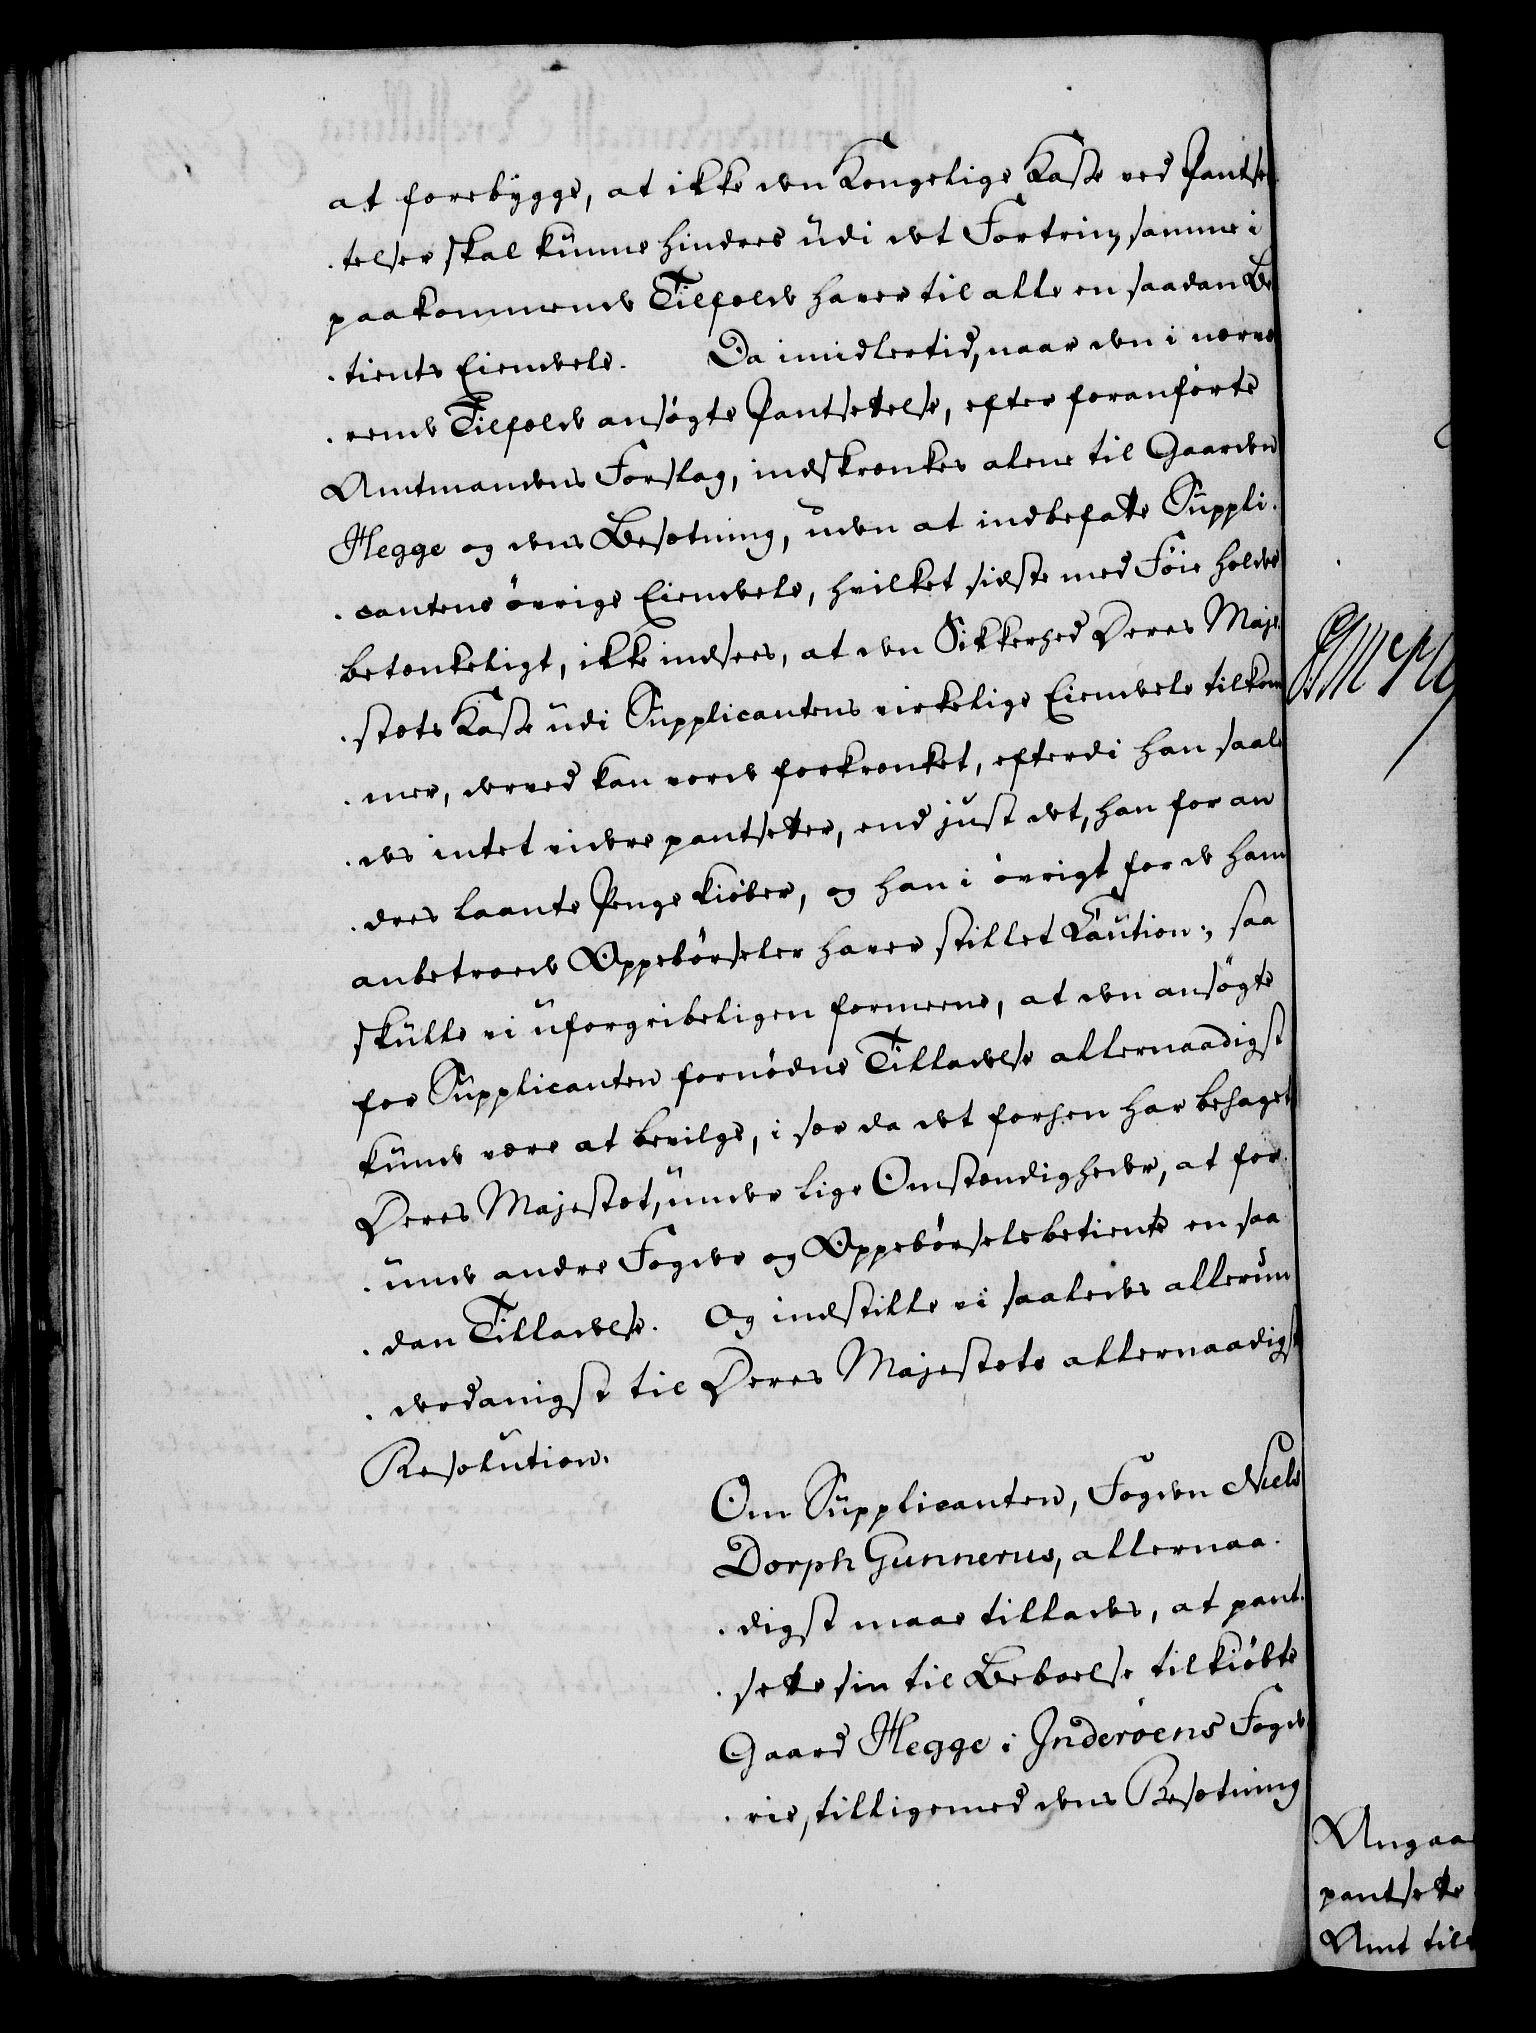 at forebygge, at ikke den Kongelige Kasse ved Pantsæ
telser skal kunne hindres udi det Fortrin, samme i
paakommende Tilfælde haver til alle en saadan Be
tients Eiendele. Da imidlertid, naar den i nærvæ
rende Tilfælde ansøgte Pantsettelse, efter foranførte
Amtmandens Forslag, indskrænkes alene til Gaarden
Hegge og dens Besætning, uden at indbefatte Suppli
cantens øvrige Eiendele, hvilket sidste med Føie holdes
betænkeligt, ikke indsees, at den Sikkerhed Deres Maje
stæts Kasse udi Supplicantens virkelige Eiendele tilkom
mer, derved kan vorde forkrænket, efterdi han saale
des intet videre pantsetter, end just det, han for an
dres laante Penge kiøber, og han i øvrigt for de ham
anbetroede Oppebørseler haver stillet Caution; saa
skulle vi uforgribeligen formeene, at den ansøgte
for Supplicanten fornødne Tilladelse allernaadigst
kunde være at bevilge, i sær da det forhen har behaget
Deres Majestæt, under lige Omstændigheder, at for
unde andre Fogder og Oppebørselsbetiente en saa
dan Tilladelse. Og indstille vi saaledes allerun
derdanigst til Deres Majestæts allernaadigst
Resolution.
Om Supplicanten, Fogden Niels
Dorph Gunnerus, allernaa
digst maae tillades, at pant
sette sin til Beboelse tilkiøbte
Gaard Hegge i Inderøens Fogde
rie, tilligemed dens Besætning
Angaa
pantsette
Amt til